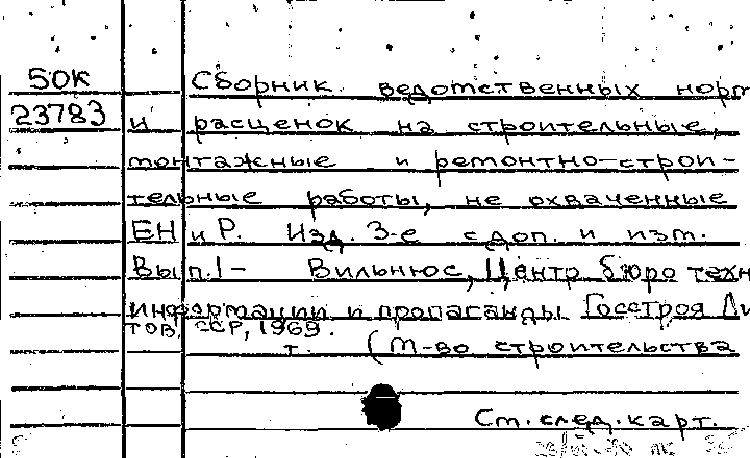 50К
23783
Сборник ведомственных норм
и расценок на строительные,
монтажные и ремонтно-строи-
тельные работы, не охваченные
ЕН и Р. Изд. 3-е с доп. и изм.
Вып. 1- Вильнюс, Центр бюро техн
информации и пропаганды Госстроя Ли
тов. ССР, 1969.
т. (М-во строительства
См. след. карт.